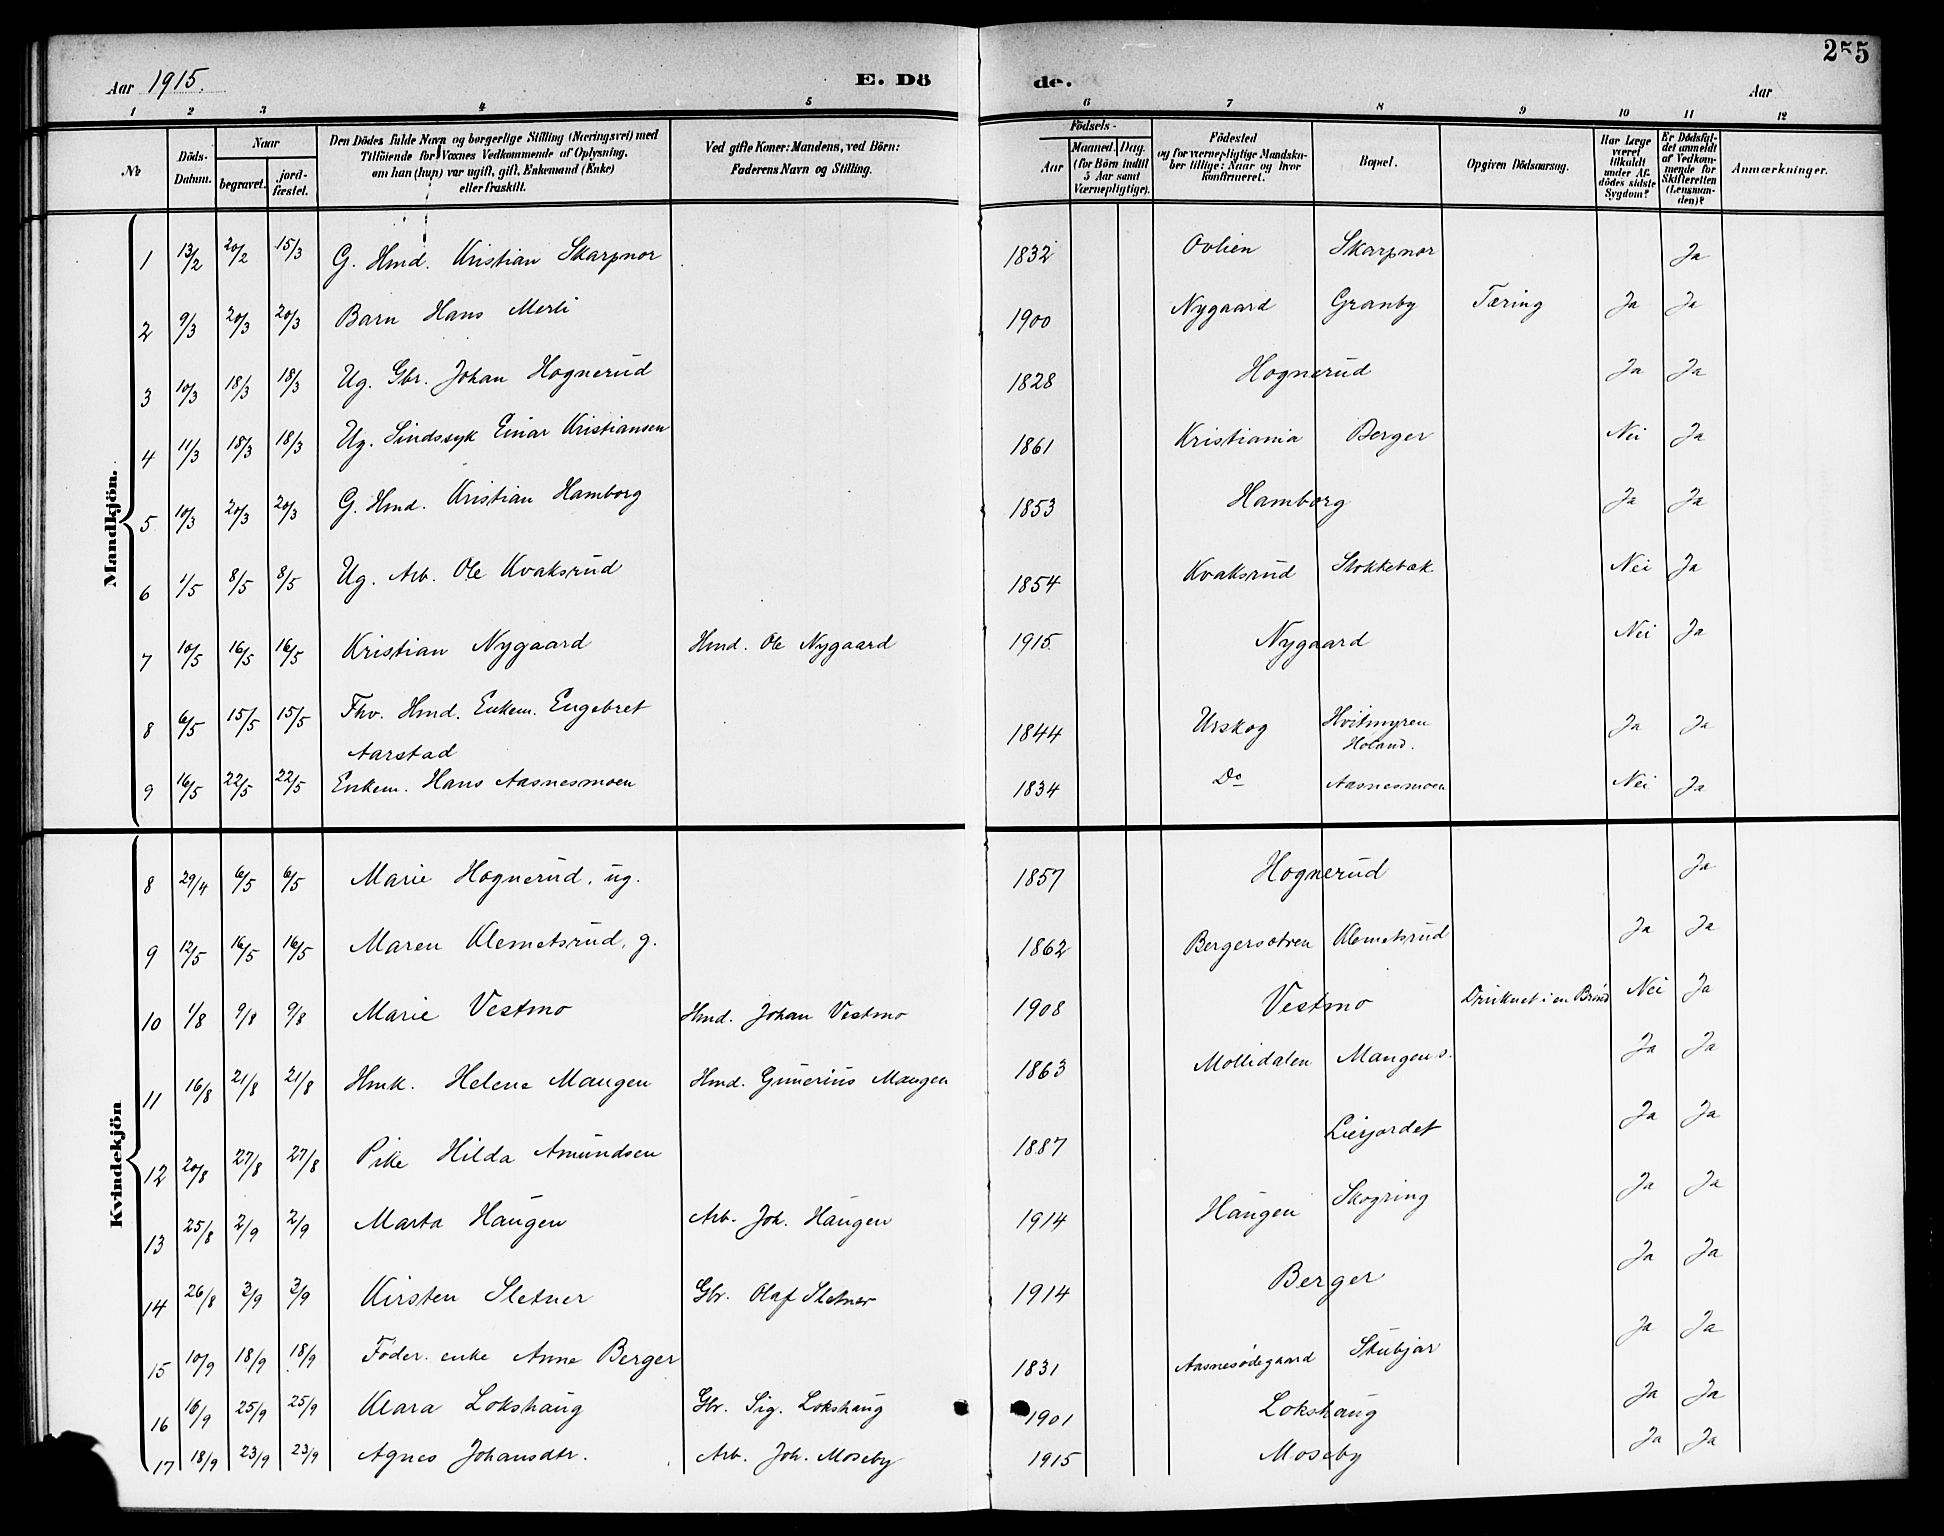 255
Aar 1915.
E. Dö
de.
Aar
1 2 3 4 5 6 7 8 9 10 11 12
No
Döds-Datum.
Naar
begravet. jord-fæstet.
Den Dödes fulde Navn og borgerlige Stilling (Næringsvei) med
Tilföiende for Voxnes Vedkommende af Oplysning,
om han (hun) var ugift, gift, Enkemand (Enke)
eller fraskilt.
Ved gifte Koner: Mandens, ved Börn:
Faderens Navn og Stilling.
Födsels-
Aar Maaned. Dag.
(for Börn indtil
5 Aar samt
Værnepligtige).
Födested
og for værnepligtige Mandska-
ber tillige: Naar og hvor
konfirmeret.
Bopæl.
Opgiven Dödsaarsag.
Har Læge
været
tilkaldt
under Af-
dödes sidste
Sygdom?
Er Dödsfal-
det anmeldt
af Vedkom-
mende for
Skifteretten
(Lensman-
den)?
Anmærkninger.
Mandkjön.
1 13/2 20/2 15/3 G. Hmd. Kristian Skarpnor 1832 Ovlien Skarpnor Ja
2 9/3 20/3 20/3 Barn Hans Merli 1900 Nygaard Granby Tæring Ja Ja
3 10/3 18/3 18/3 Ug. Gbr. Johan Hognerud 1828 Hognerud Ja Ja
4 11/3 18/3 18/3 Ug. Sindssyk Einar Kristiansen 1861 Kristiania Berger Nei Ja
5 10/3 20/3 20/3 G. Hmd. Kristian Hamborg 1853 Hamborg Ja Ja
6 1/5 8/5 8/5 Ug. Arb. Ole Kvaksrud 1854 Kvaksrud Stokkebæk Nei Ja
7 10/5 16/5 16/5 Kristian Nygaard Hmd. Ole Nygaard 1915 Nygaard Nei Ja
8 6/5 15/5 15/5 Fhv. Hmd. Enkem. Engebret 1844 Urskog Hvitmyren Ja Ja
Aarstad Höland.
9 16/5 22/5 22/5 Enkem. Hans Aasnesmoen 1834 Do Aasnesmoen Nei Ja
Kvindekjön
8 29/4 6/5 6/5 Marie Hognerud, ug. 1857 Hognerud Ja
9 12/5 16/5 16/5 Maren Klemetsrud, g. 1862 Bergersætren Klemetsrud Ja Ja
10 1/8 9/8 9/8 Marie Vestmo Hmd. Johan Vestmo 1908 Vestmo Druknet i en Brönd Nei Ja
11 16/8 21/8 21/8 Hmk. Helene Mangen Hmd. Gunerius Mangen 1863 Mollidalen Mangen s. Ja Ja
12 20/8 27/8 27/8 Pike Hilda Amundsen 1887 Lierjordet Ja Ja
13 25/8 2/9 2/9 Marta Haugen Arb. Joh. Haugen 1914 Haugen Skogring Ja Ja
14 26/8 3/9 3/9 Kirsten Sletner Gbr. Olaf Sletner 1914 Berger Ja Ja
15 10/9 18/9 18/9 Föder. enke Anne Berger 1831 Aasnesödegaard Skubjar Ja Ja
16 16/9 25/9 25/9 Klara Lokshaug Gbr. Sig. Lokshaug 1901 Lokshaug Ja Ja
17 18/9 23/9 23/9 Agnes Johansdtr. Arb. Joh. Moseby 1915 Moseby Ja Ja